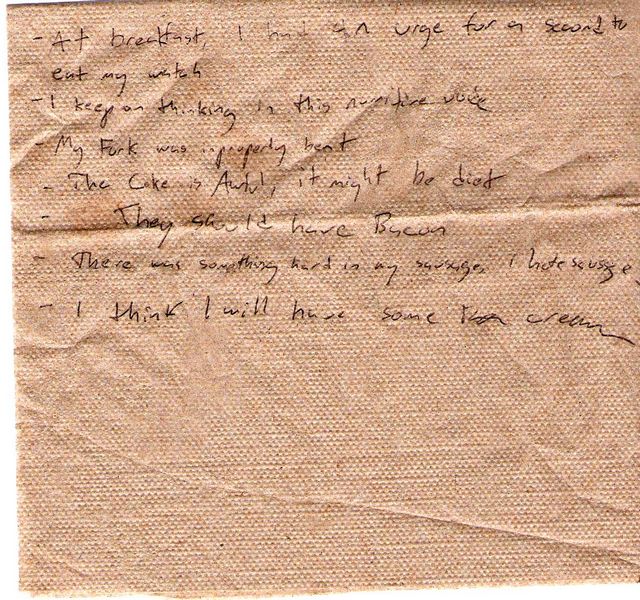 - At breakfast, I had an urge for a second to
eat my watch
- I keep on thinking in this narritive voice
- My Fork was inproperly bent
- The Coke is Awful, it might be diet
- They should have Bacon
- There was something hard in my sausage, i hate sausage
- I think I will have some cream